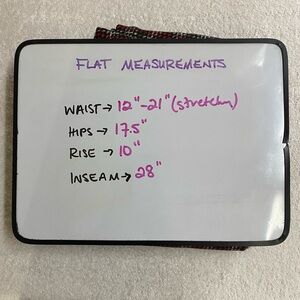 FLAT MEASUREMENTS
WAIST → 12"-21" (stretchy)
HIPS → 17.5"
RISE → 10"
INSEAM → 28"